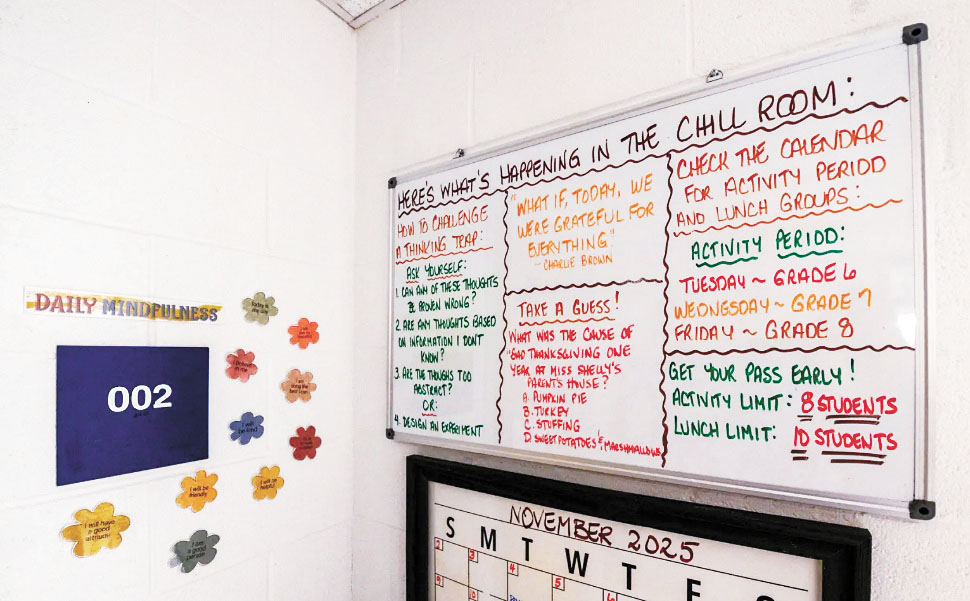 DAILY MINDFULNESS
002
Today is
my day
I believe
in me
I am
doing the
best I can
I will
be kind
I will be
friendly
I will be
helpful
I will have
a good
attitude
I am
a good
person
HERE'S WHAT'S HAPPENING IN THE CHILL ROOM:
HOW TO CHALLENGE
A THINKING TRAP:
ASK YOURSELF:
1. CAN ANY OF THESE THOUGHTS
BE BROKEN WRONG?
2. ARE ANY THOUGHTS BASED
ON INFORMATION I DON'T
KNOW?
3. ARE THE THOUGHTS TOO
ABSTRACT?
OR:
4. DESIGN AN EXPERIMENT
"WHAT IF, TODAY, WE
WERE GRATEFUL FOR
EVERYTHING."
- CHARLIE BROWN
TAKE A GUESS!
WHAT WAS THE CAUSE OF
"BAD THANKSGIVING ONE
YEAR AT MISS SHELLY'S
PARENTS HOUSE?
A. PUMPKIN PIE
B. TURKEY
C. STUFFING
D. SWEET POTATOES & MARSHMALLOWS
CHECK THE CALENDAR
FOR ACTIVITY PERIOD
AND LUNCH GROUPS:
ACTIVITY PERIOD:
TUESDAY ~ GRADE 6
WEDNESDAY ~ GRADE 7
FRIDAY ~ GRADE 8
GET YOUR PASS EARLY!
ACTIVITY LIMIT: 8 STUDENTS
LUNCH LIMIT: 10 STUDENTS
NOVEMBER 2025
S M T W T F S
2 3 4 5 6
9 10